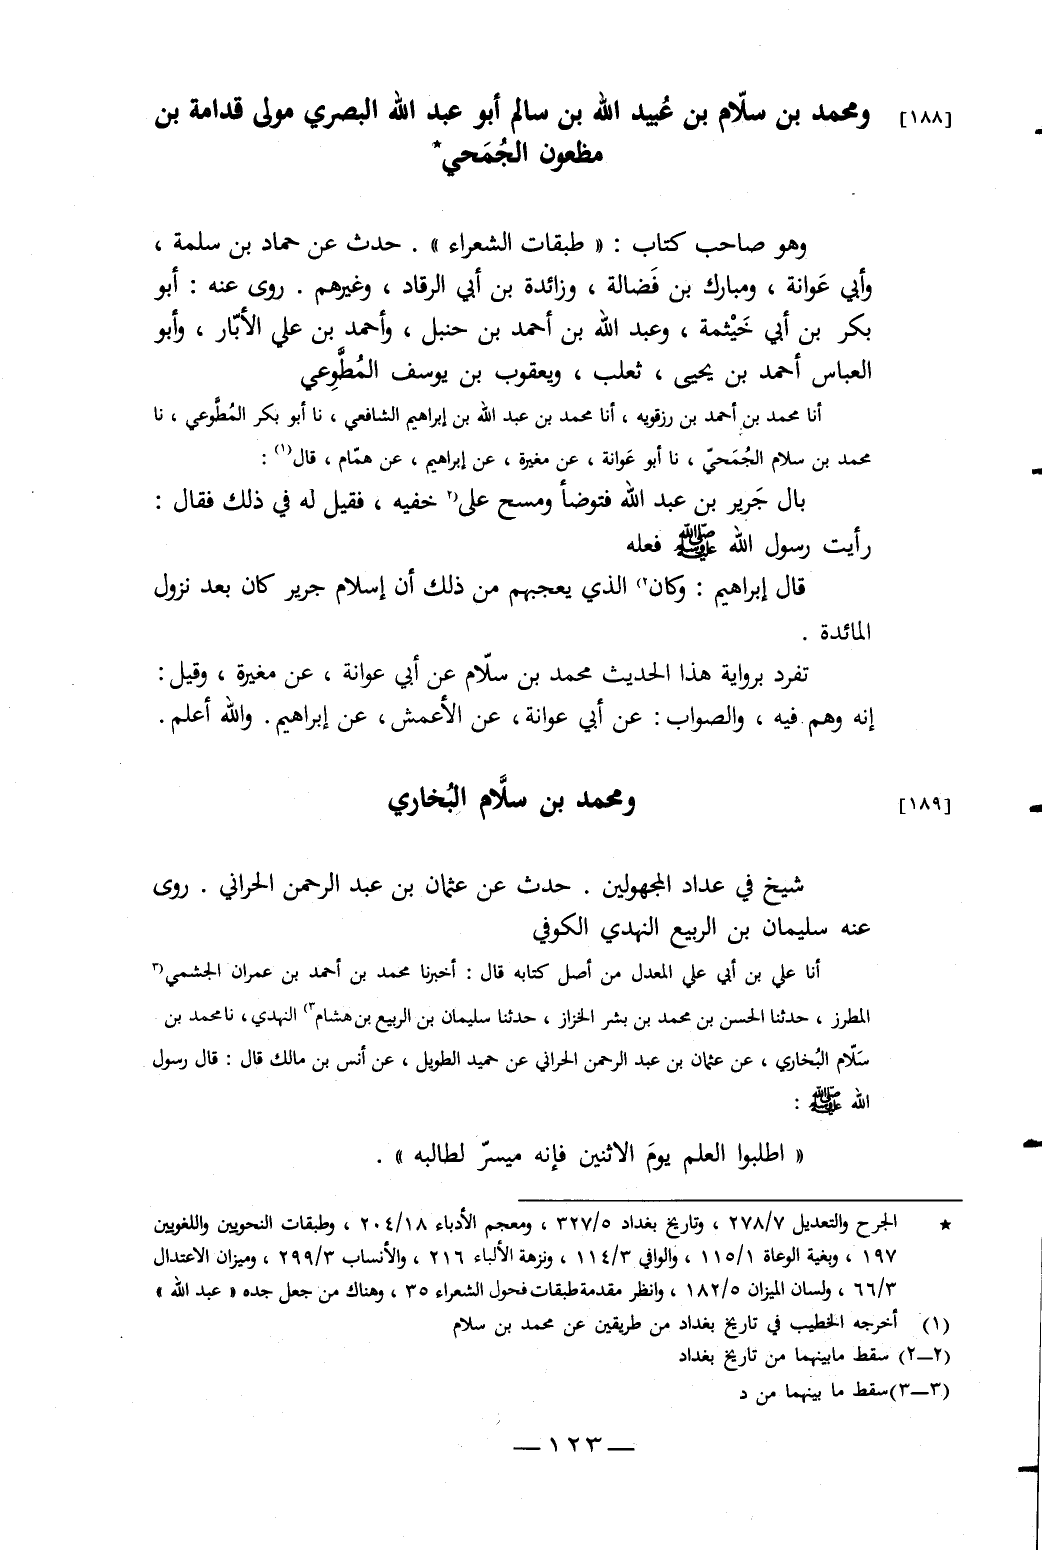 [١٨٨] ومحمد بن سلّام بن عُبيد الله بن سالم أبو عبد الله البصري مولى قدامة بن
مظعون الجُمَحي*
وهو صاحب كتاب : « طبقات الشعراء » . حدث عن حماد بن سلمة ،
وأبي عَوانة ، ومبارك بن فَضالة ، وزائدة بن أبي الرقاد ، وغيرهم . روى عنه : أبو
بكر بن أبي خَيْثمة ، وعبد الله بن أحمد بن حنبل ، وأحمد بن علي الأبّار ، وأبو
العباس أحمد بن يحيى ، ثعلب ، ويعقوب بن يوسف المُطَّوِعي
أنا محمد بن أحمد بن رزقويه ، أنا محمد بن عبد الله بن إبراهيم الشافعي ، نا أبو بكر المُطَّوعي ، نا
محمد بن سلام الجُمَحيّ ، نا أبو عَوانة ، عن مغيرة ، عن إبراهيم ، عن همّام ، قال(١) :
بال جَرير بن عبد الله فتوضأ ومسح على(٢ خفيه ، فقيل له في ذلك فقال :
رأيت رسول الله ﷺ فعله
قال إبراهيم : وكان٢) الذي يعجبهم من ذلك أن إسلام جرير كان بعد نزول
المائدة .
تفرد برواية هذا الحديث محمد بن سلّام عن أبي عوانة ، عن مغيرة ، وقيل :
إنه وهم فيه ، والصواب : عن أبي عوانة ، عن الأعمش ، عن إبراهيم . والله أعلم .
[١٨٩] ومحمد بن سلَّام البُخاري
شيخ في عداد المجهولين . حدث عن عثمان بن عبد الرحمن الحراني . روى
عنه سليمان بن الربيع النهدي الكوفي
أنا علي بن أبي علي المعدل من أصل كتابه قال : أخبرنا محمد بن أحمد بن عمران الجشمي(٣
المطرز ، حدثنا الحسن بن محمد بن بشر الخزاز ، حدثنا سليمان بن الربيع بن هشام٣) النهدي ، نا محمد بن
سَلّام البُخاري ، عن عثمان بن عبد الرحمن الحراني عن حميد الطويل ، عن أنس بن مالك قال : قال رسول
الله ﷺ :
« اطلبوا العلم يومَ الاثنين فإنه ميسرّ لطالبه » .
* الجرح والتعديل ٢٧٨/٧ ، وتاريخ بغداد ٣٢٧/٥ ، ومعجم الأدباء ٢٠٤/١٨ ، وطبقات النحويين واللغويين
١٩٧ ، وبغية الوعاة ١١٥/١ ، والوافي ١١٤/٣ ، ونزهة الألباء ٢١٦ ، والأنساب ٢٩٩/٣ ، وميزان الاعتدال
٦٦/٣ ، ولسان الميزان ١٨٢/٥ ، وانظر مقدمة طبقات فحول الشعراء ٣٥ ، وهناك من جعل جده « عبد الله »
(١) أخرجه الخطيب في تاريخ بغداد من طريقين عن محمد بن سلام
(٢_٢) سقط مابينهما من تاريخ بغداد
(٣_٣) سقط ما بينهما من د
_ ١٢٣ _